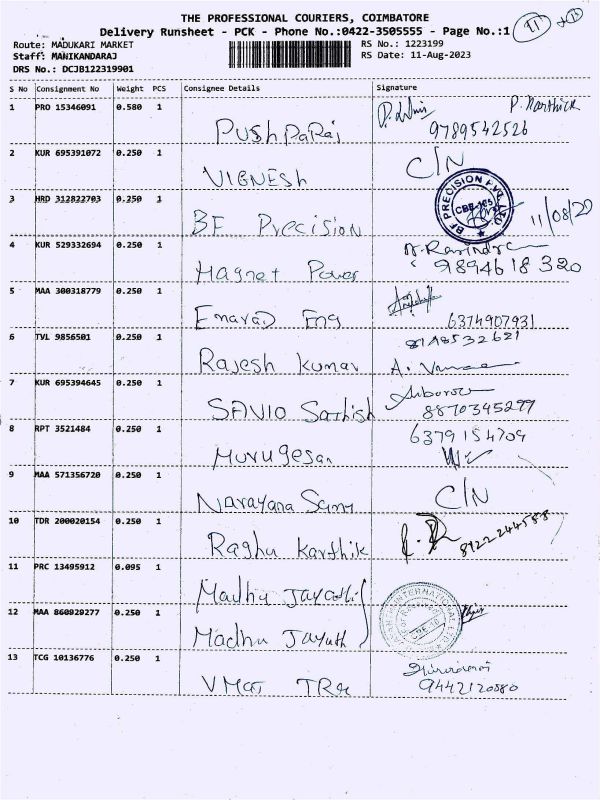 THE PROFESSIONAL COURIERS, COIMBATORE
Delivery Runsheet - PCK - Phone No.:0422-3505555 - Page No.:1
Route: MADUKARI MARKET RS No.: 1223199
Staff: MANIKANDARAJ RS Date: 11-Aug-2023
DRS No.: DCJB122319901
S No Consignment No Weight PCS Consignee Details Signature
1 PRO 15346091 0.580 1 Pushparaj 9789542526
2 KUR 695391072 0.250 1 VIGNESH C/N
3 HRD 312822703 0.250 1 BF Precision BF PRECISION PVT. LTD CBE-105 11/08/20
4 KUR 529332694 0.250 1 Magnet Power 9894618320
5 MAA 300318779 0.250 1 Emarad Eng 6374907931
6 TVL 9856501 0.250 1 Rajesh Kumar
7 KUR 695394645 0.250 1 SAVIO Sathish 8870345299
8 RPT 3521484 0.250 1 Murugesan 6379154709
9 MAA 571356720 0.250 1 Narayana Samy C/N
10 TDR 200020154 0.250 1 Raghu Karthik 8122244588
11 PRC 13495912 0.095 1 Madhu
12 MAA 860929277 0.250 1 Madhu INTERNATIONAL
13 TCG 10136776 0.250 1 9442120880